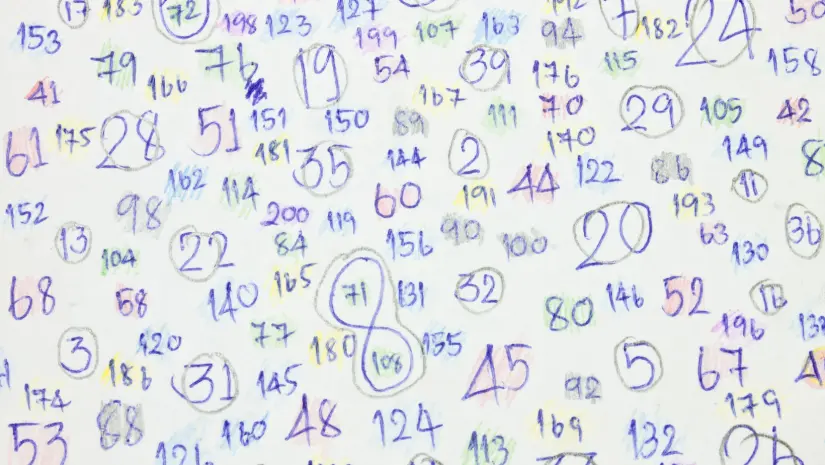 17 183 72 198 123 127 199 107 163 94 7 182 24 50
153 79 166 76 19 54 39 176 115 158
41 167 111 70 29 105 42
61 175 28 51 151 150 89 170 149
181 35 144 2 44 122 86 11
162 114 60 191 193
152 98 200 119 90 100 20 63 36
13 104 22 84 156 130
68 58 140 165 8 71 131 32 80 146 52 16
77 196
3 120 180 108 155 45 5 67
174 186 31 145 92 179
53 88 160 48 124 113 169 132